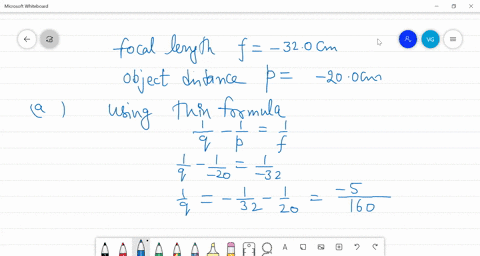 Microsoft Whiteboard
VG
focal length f = -32.0 cm
object distance p = -20.0cm
(a) using thin formula
1/q - 1/p = 1/f
1/q - 1/-20 = 1/-32
1/q = - 1/32 - 1/20 = -5/160
A